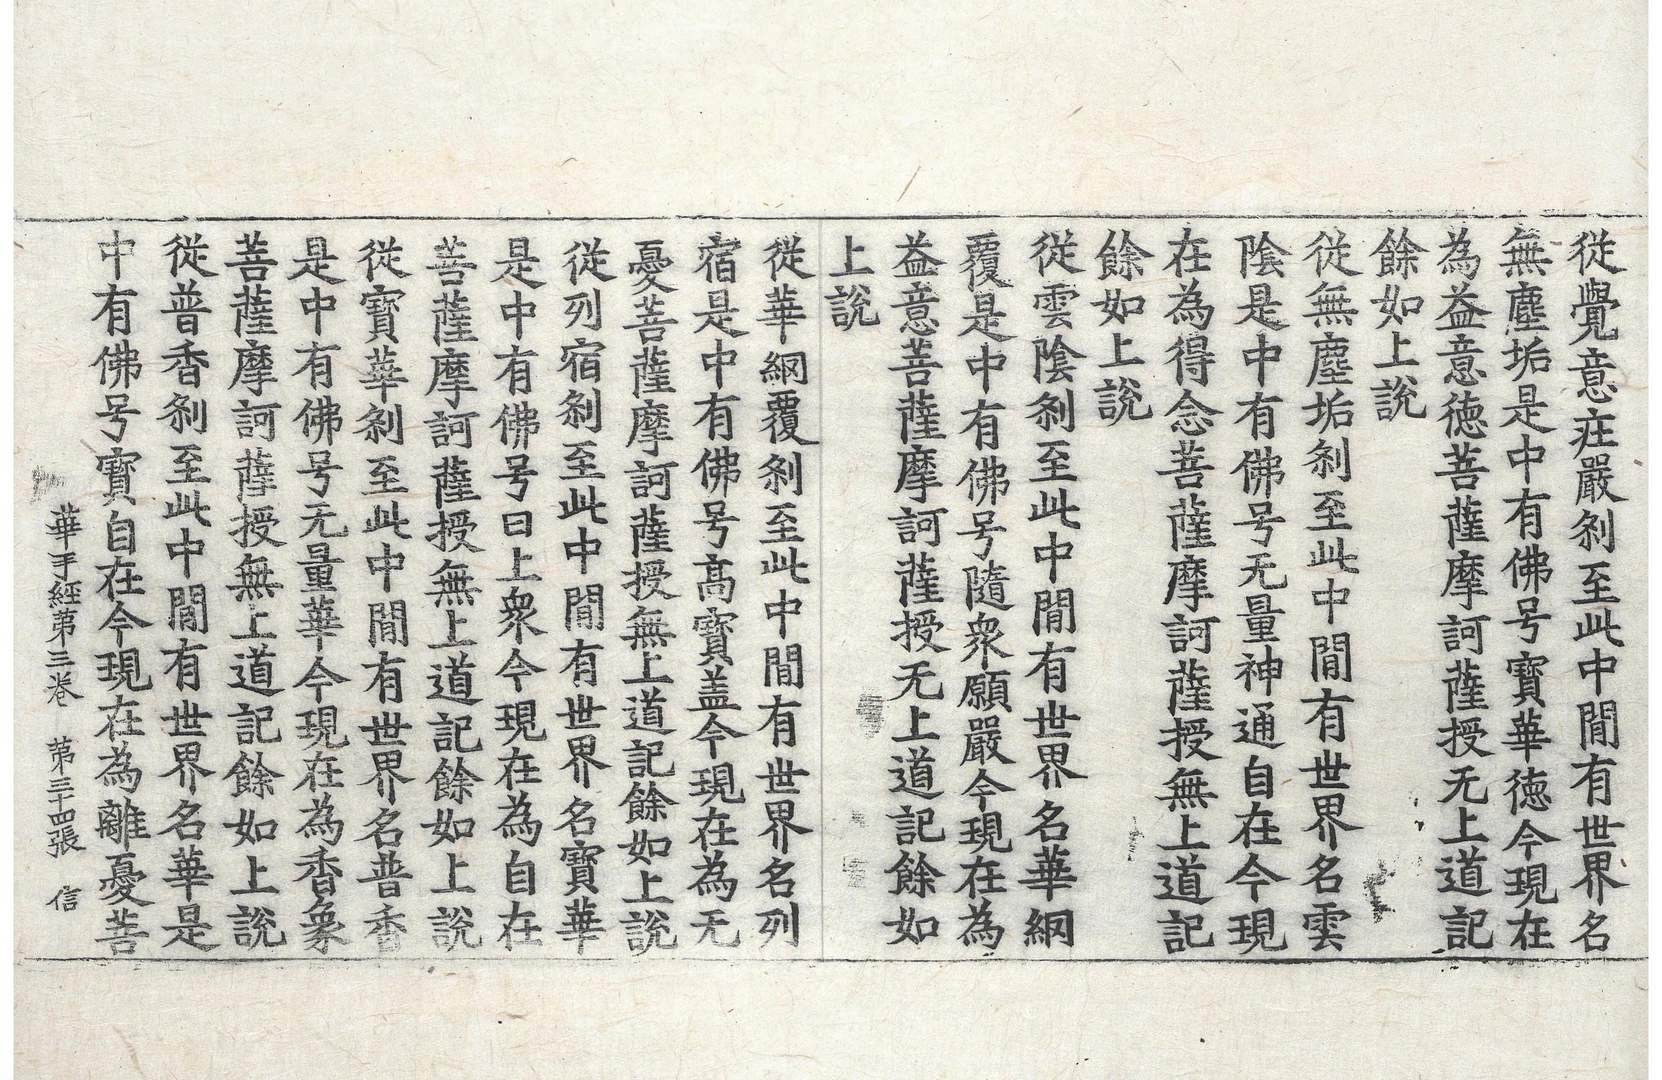 從覺意庄嚴刹至此中閒有世界名
無塵垢是中有佛号寶華徳今現在
為益意徳菩薩摩訶薩授无上道記
餘如上說
從無塵垢刹至此中閒有世界名雲
陰是中有佛号无量神通自在今現
在為得念菩薩摩訶薩授無上道記
餘如上說
從雲陰刹至此中閒有世界名華網
覆是中有佛号隨衆願嚴今現在為
益意菩薩摩訶薩授无上道記餘如
上說
從華網覆刹至此中閒有世界名列
宿是中有佛号髙寶盖今現在為无
憂菩薩摩訶薩授無上道記餘如上說
從列宿刹至此中閒有世界名寶華
是中有佛号曰上衆今現在為自在
菩薩摩訶薩授無上道記餘如上說
從寶華刹至此中閒有世界名普香
是中有佛号无量華今現在為香象
菩薩摩訶薩授無上道記餘如上說
從普香刹至此中閒有世界名華是
中有佛号寶自在今現在為離憂菩
華手經第三卷 第三十四張 信